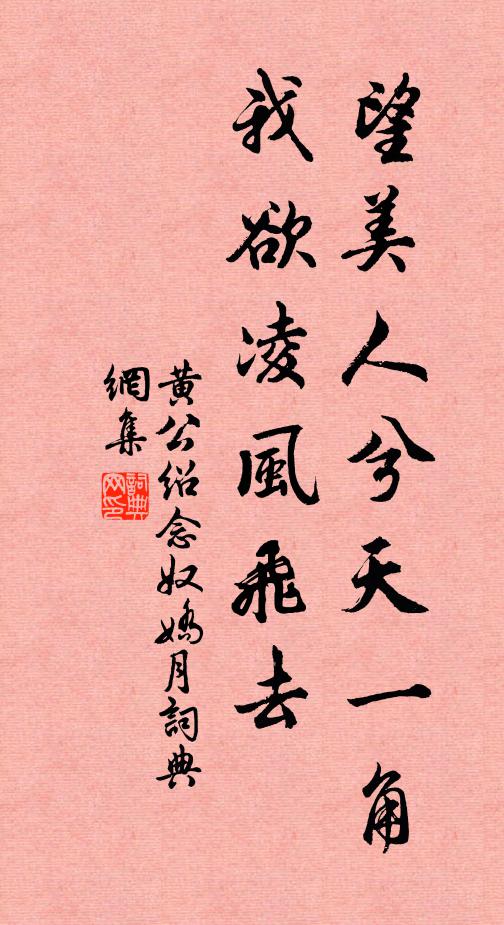 望美人兮天一角
我欲凌風飛去
黃公绍念奴嬌月詞典
網集
詞典网印